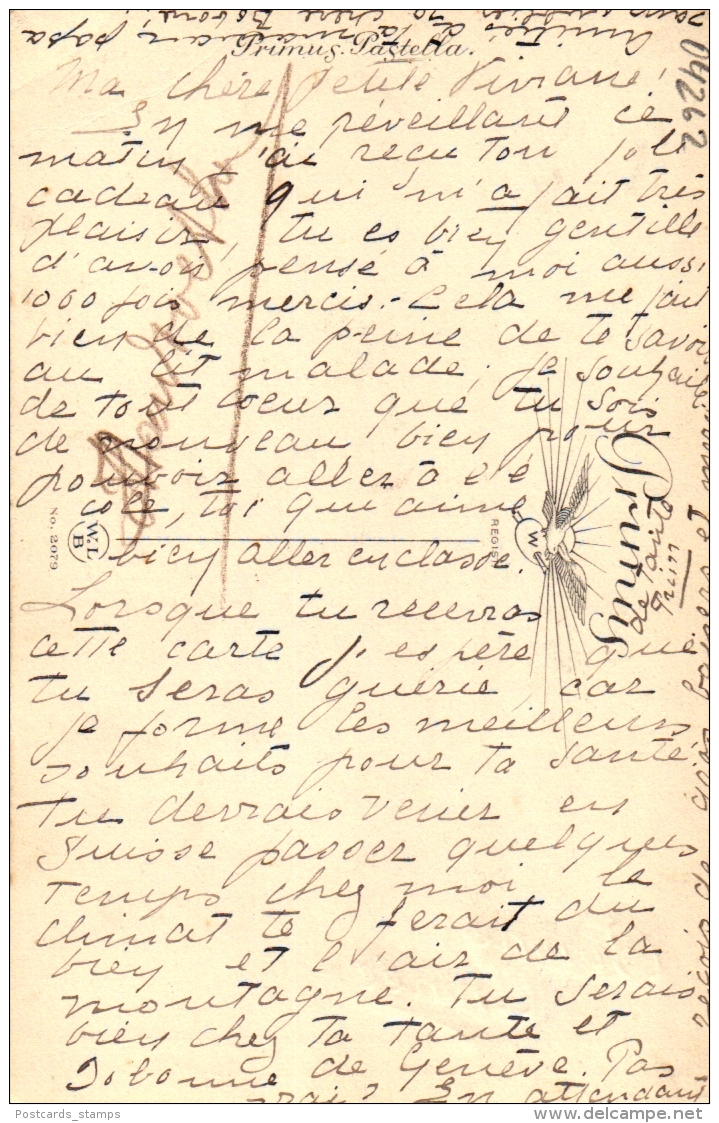 Primus-Pastella.
04262
Ma chère Petite Viviane!
En me réveillant ce
matin j'ai reçu ton joli
cadeau qui m'a fait très
plaisir, tu es bien gentille
d'avoir pensé à moi aussi
1000 fois mercis.- Cela me fait
bien de la peine de te savoir
au lit malade, je souhaite
de tout coeur que tu sois
de nouveau bien pour
pouvoir aller à l'é
cole, toi qui aime
bien aller en classe.
Lorsque tu recevras
cette carte j'espère que
tu seras guérie, car
je forme les meilleurs
souhaits pour ta santé
Tu devrais venir en
Suisse passer quelques
temps chez moi le
climat te ferait du
bien et l'air de la
montagne. Tu serais
bien chez ta tante et
Bobonne de Genève. Pas
vrai? En attendant
reçois de gros baisers et
de Tante
Prim
Amitiés à ta maman, papa
sans oublier ta chère Bobonne!
Primus
REGIST
W
No. 2079
W.L.
B
Postcards_stamps